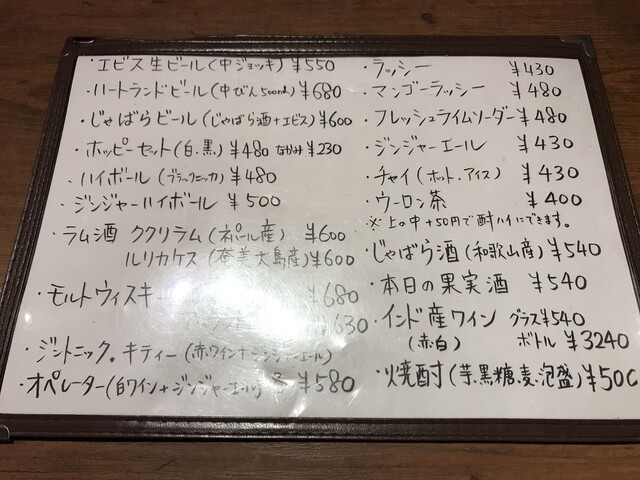 ・エビス生ビール(中ジョッキ) ¥550
・ハートランドビール(中びん500ml) ¥680
・じゃばらビール(じゃばら酒+エビス) ¥600
・ホッピーセット(白.黒) ¥480 なかみ ¥230
・ハイボール(ブラックニッカ) ¥480
・ジンジャーハイボール ¥500
・ラム酒 ククリラム(ネパール産) ¥600
ルリカケス(奄美大島産) ¥600
・モルトウィスキー ¥680
¥630
・ジントニック。キティー(赤ワイン+ジンジャーエール)
・オペレーター(白ワイン+ジンジャーエール) 各 ¥580
・ラッシー ¥430
・マンゴーラッシー ¥480
・フレッシュライムソーダー ¥480
・ジンジャーエール ¥430
・チャイ(ホット.アイス) ¥430
・ウーロン茶 ¥400
※上の中+50円で酎ハイにできます。
・じゃばら酒(和歌山産) ¥540
・本日の果実酒 ¥540
・インド産ワイン グラス¥540
(赤.白) ボトル ¥3240
・焼酎(芋.黒糖.麦.泡盛) ¥500